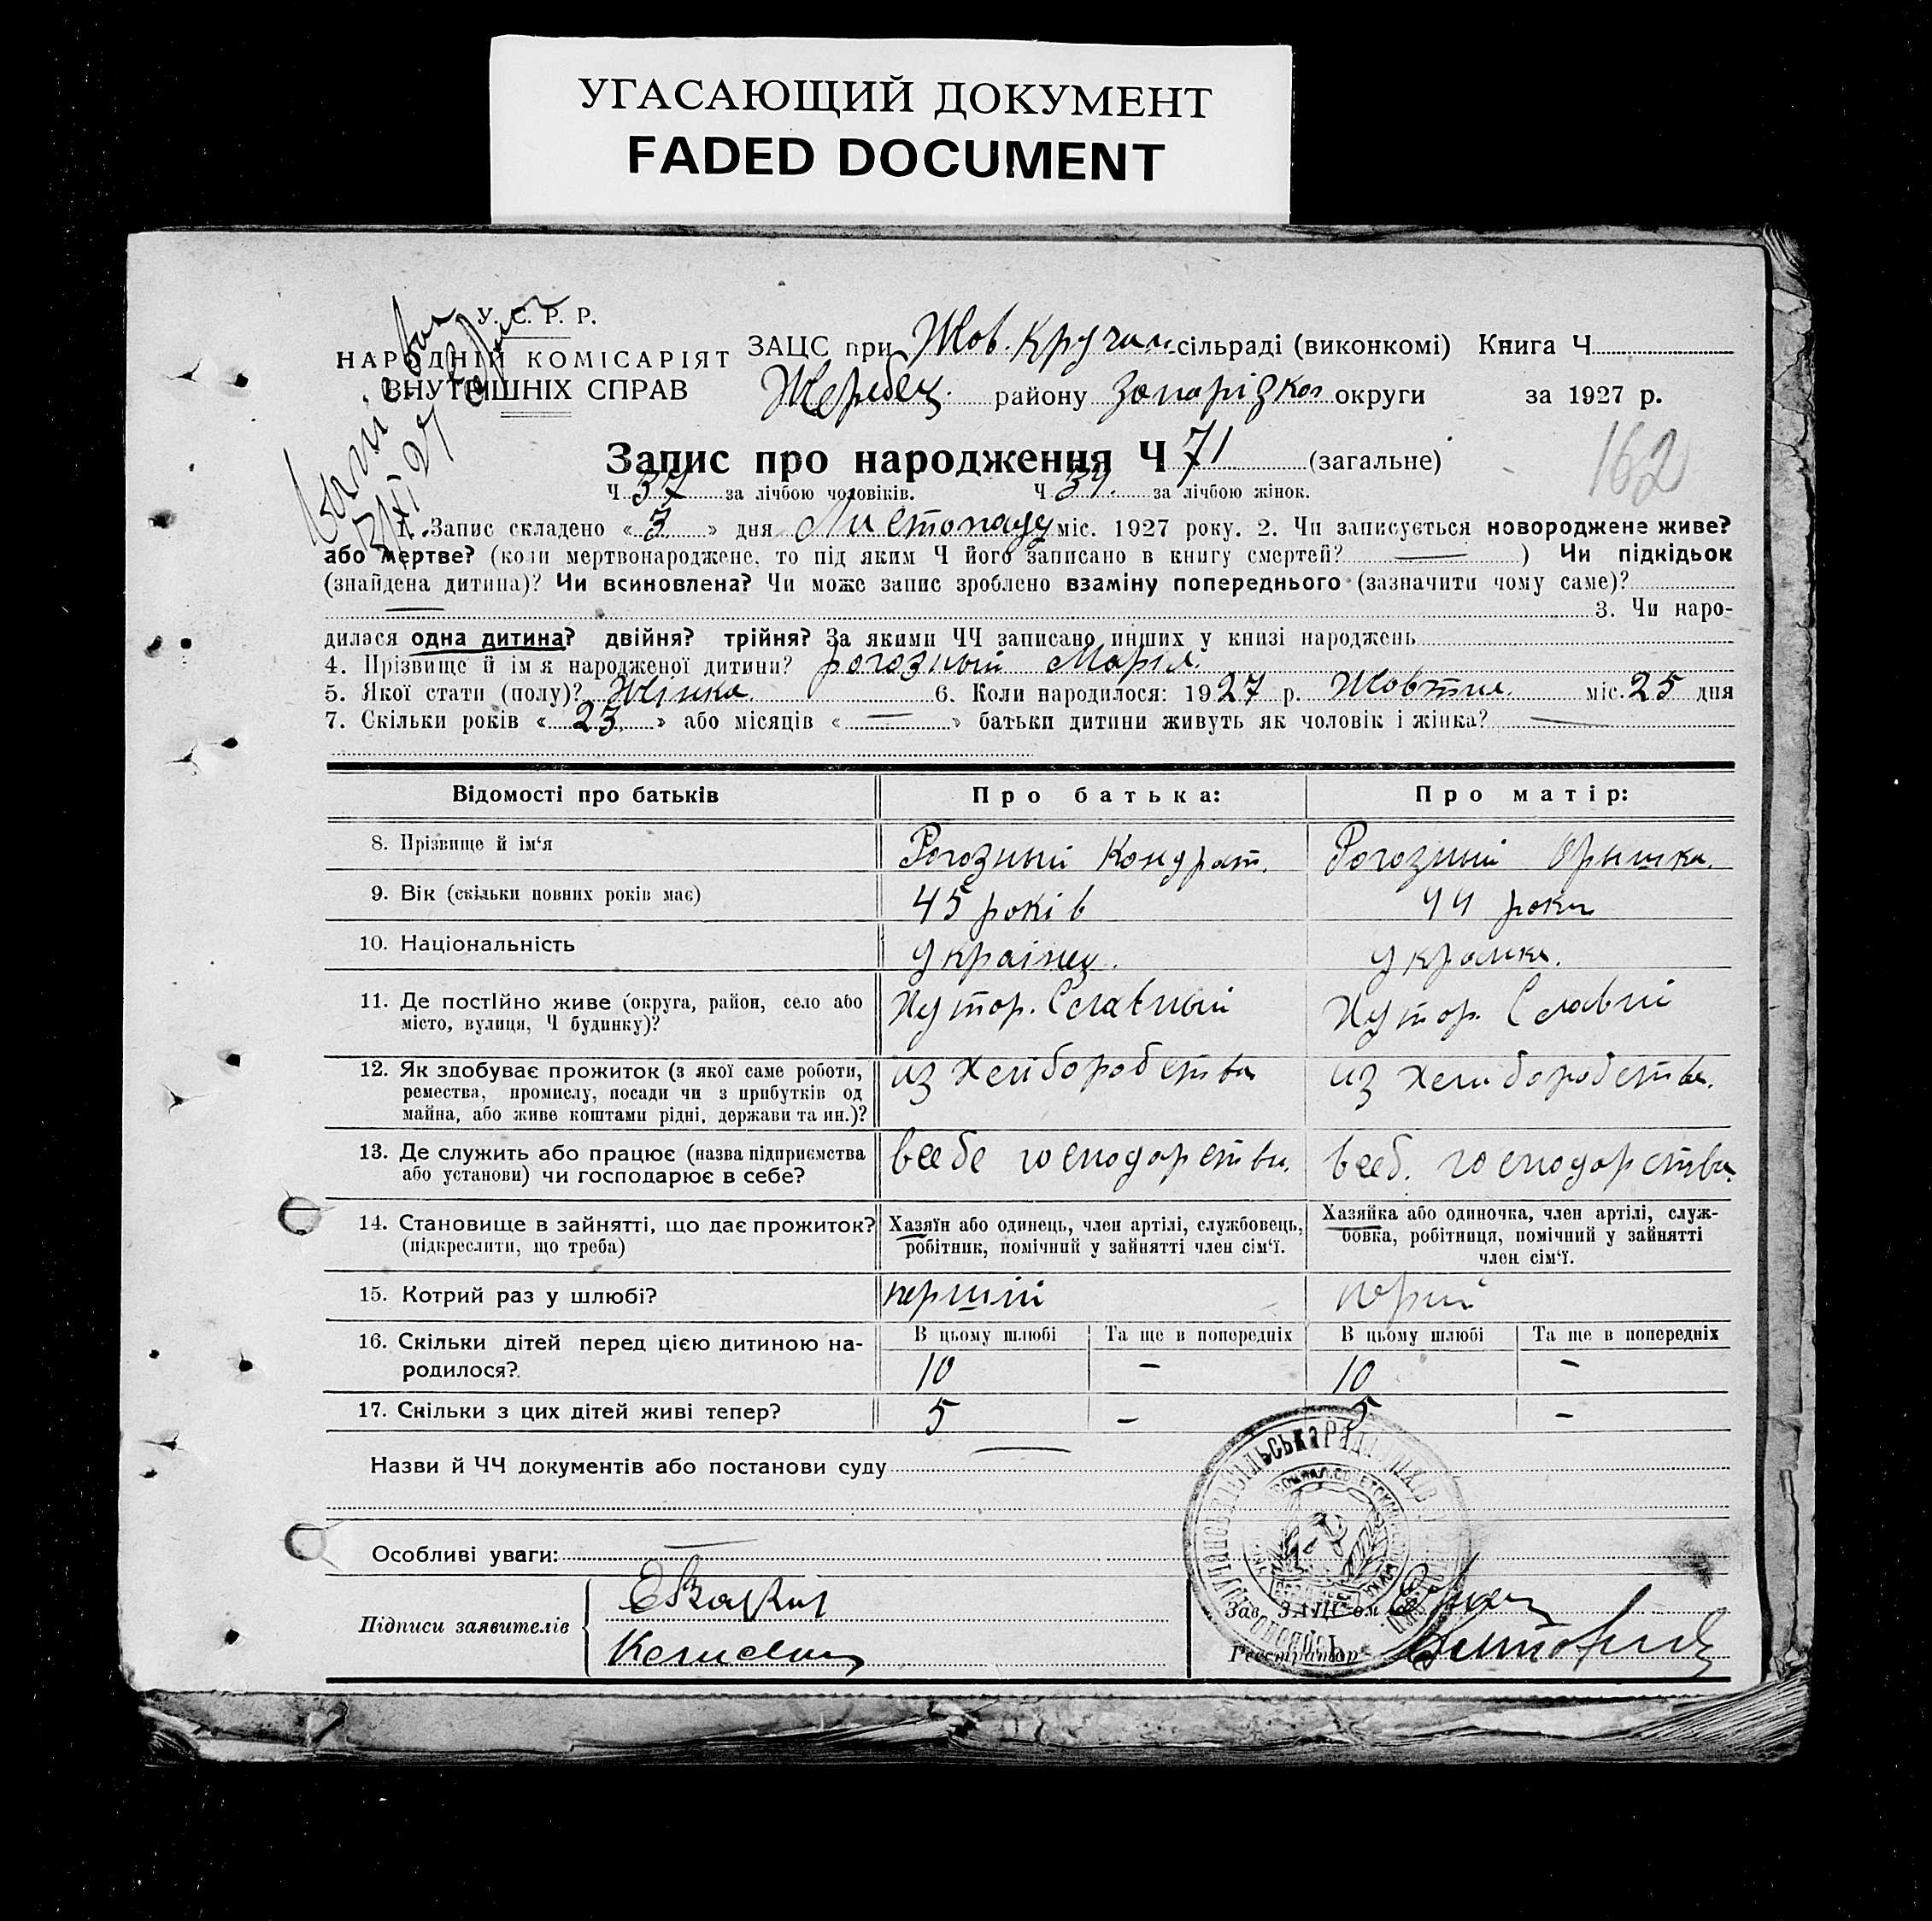 УГАСАЮЩИЙ ДОКУМЕНТ
FADED DOCUMENT
У. С. Р. Р.
НАРОДНІЙ КОМІСАРІЯТ
ВНУТРІШНІХ СПРАВ
ЗАЦС при Жов. Кручан сільраді (виконкомі) Книга Ч
Жеребец. району Запорізкої округи за 1927 р.
162
Запис про народження Ч 71 (загальне)
Ч 37 за лічбою чоловіків. Ч 34. за лічбою жінок.
1. Запис складено « 3 » дня Листопаду міс. 1927 року. 2. Чи записується новороджене живе?
або мертве? (коли мертвонароджене, то під яким Ч його записано в книгу смертей? — ) Чи підкідьок
(знайдена дитина)? Чи всиновлена? Чи може запис зроблено взаміну попереднього (зазначити чому саме)?
— 3. Чи наро-
дилася одна дитина? двійня? трійня? За якими ЧЧ записано инших у книзі народжень
4. Прізвище й ім'я народженої дитини? Рогозный Марія.
5. Якої стати (полу)? Жінка 6. Коли народилося: 1927 р. Жовтня міс. 25 дня
7. Скільки років « 23 » або місяців « — » батьки дитини живуть як чоловік і жінка? —
Відомості про батьків Про батька: Про матір:
8. Прізвище й ім'я Рогозный Кондрат. Рогозный Орышка.
9. Вік (скільки повних років має) 45 років 44 роки
10. Національність Українец. Украінка.
11. Де постійно живе (округа, район, село або
місто, вулиця, Ч будинку)? Хутор. Славный Хутор. Славній
12. Як здобуває прожиток (з якої саме роботи,
ремества, промислу, посади чи з прибутків од
майна, або живе коштами рідні, держави та ин.)? из хлиборобства из хлиборобства.
13. Де служить або працює (назва підприємства
або установи) чи господарює в себе? всебе господарства. всеб. господарства.
14. Становище в зайнятті, що дає прожиток?
(підкреслити, що треба)
Хазяїн або одинець, член артілі, службовець,
робітник, помічний у зайнятті член сім'ї.
Хазяйка або одиночка, член артілі, служ-
бовка, робітниця, помічний у зайнятті
член сім'ї.
15. Котрий раз у шлюбі? першій перший
16. Скільки дітей перед цією дитиною на-
родилося?
В цьому шлюбі Та ще в попередніх В цьому шлюбі Та ще в попередніх
10 — 10 —
17. Скільки з цих дітей живі тепер? 5 — 5 —
Назви й ЧЧ документів або постанови суду —
Особливі уваги: —
Підписи заявителів
Зав. ЗАЦС-ом
Реєстратор